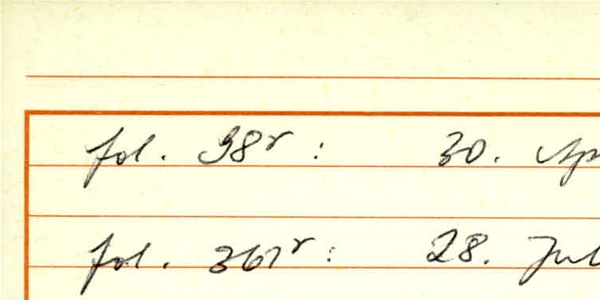 fol. 98r : 30. Ap
fol. 361r : 28. Jul